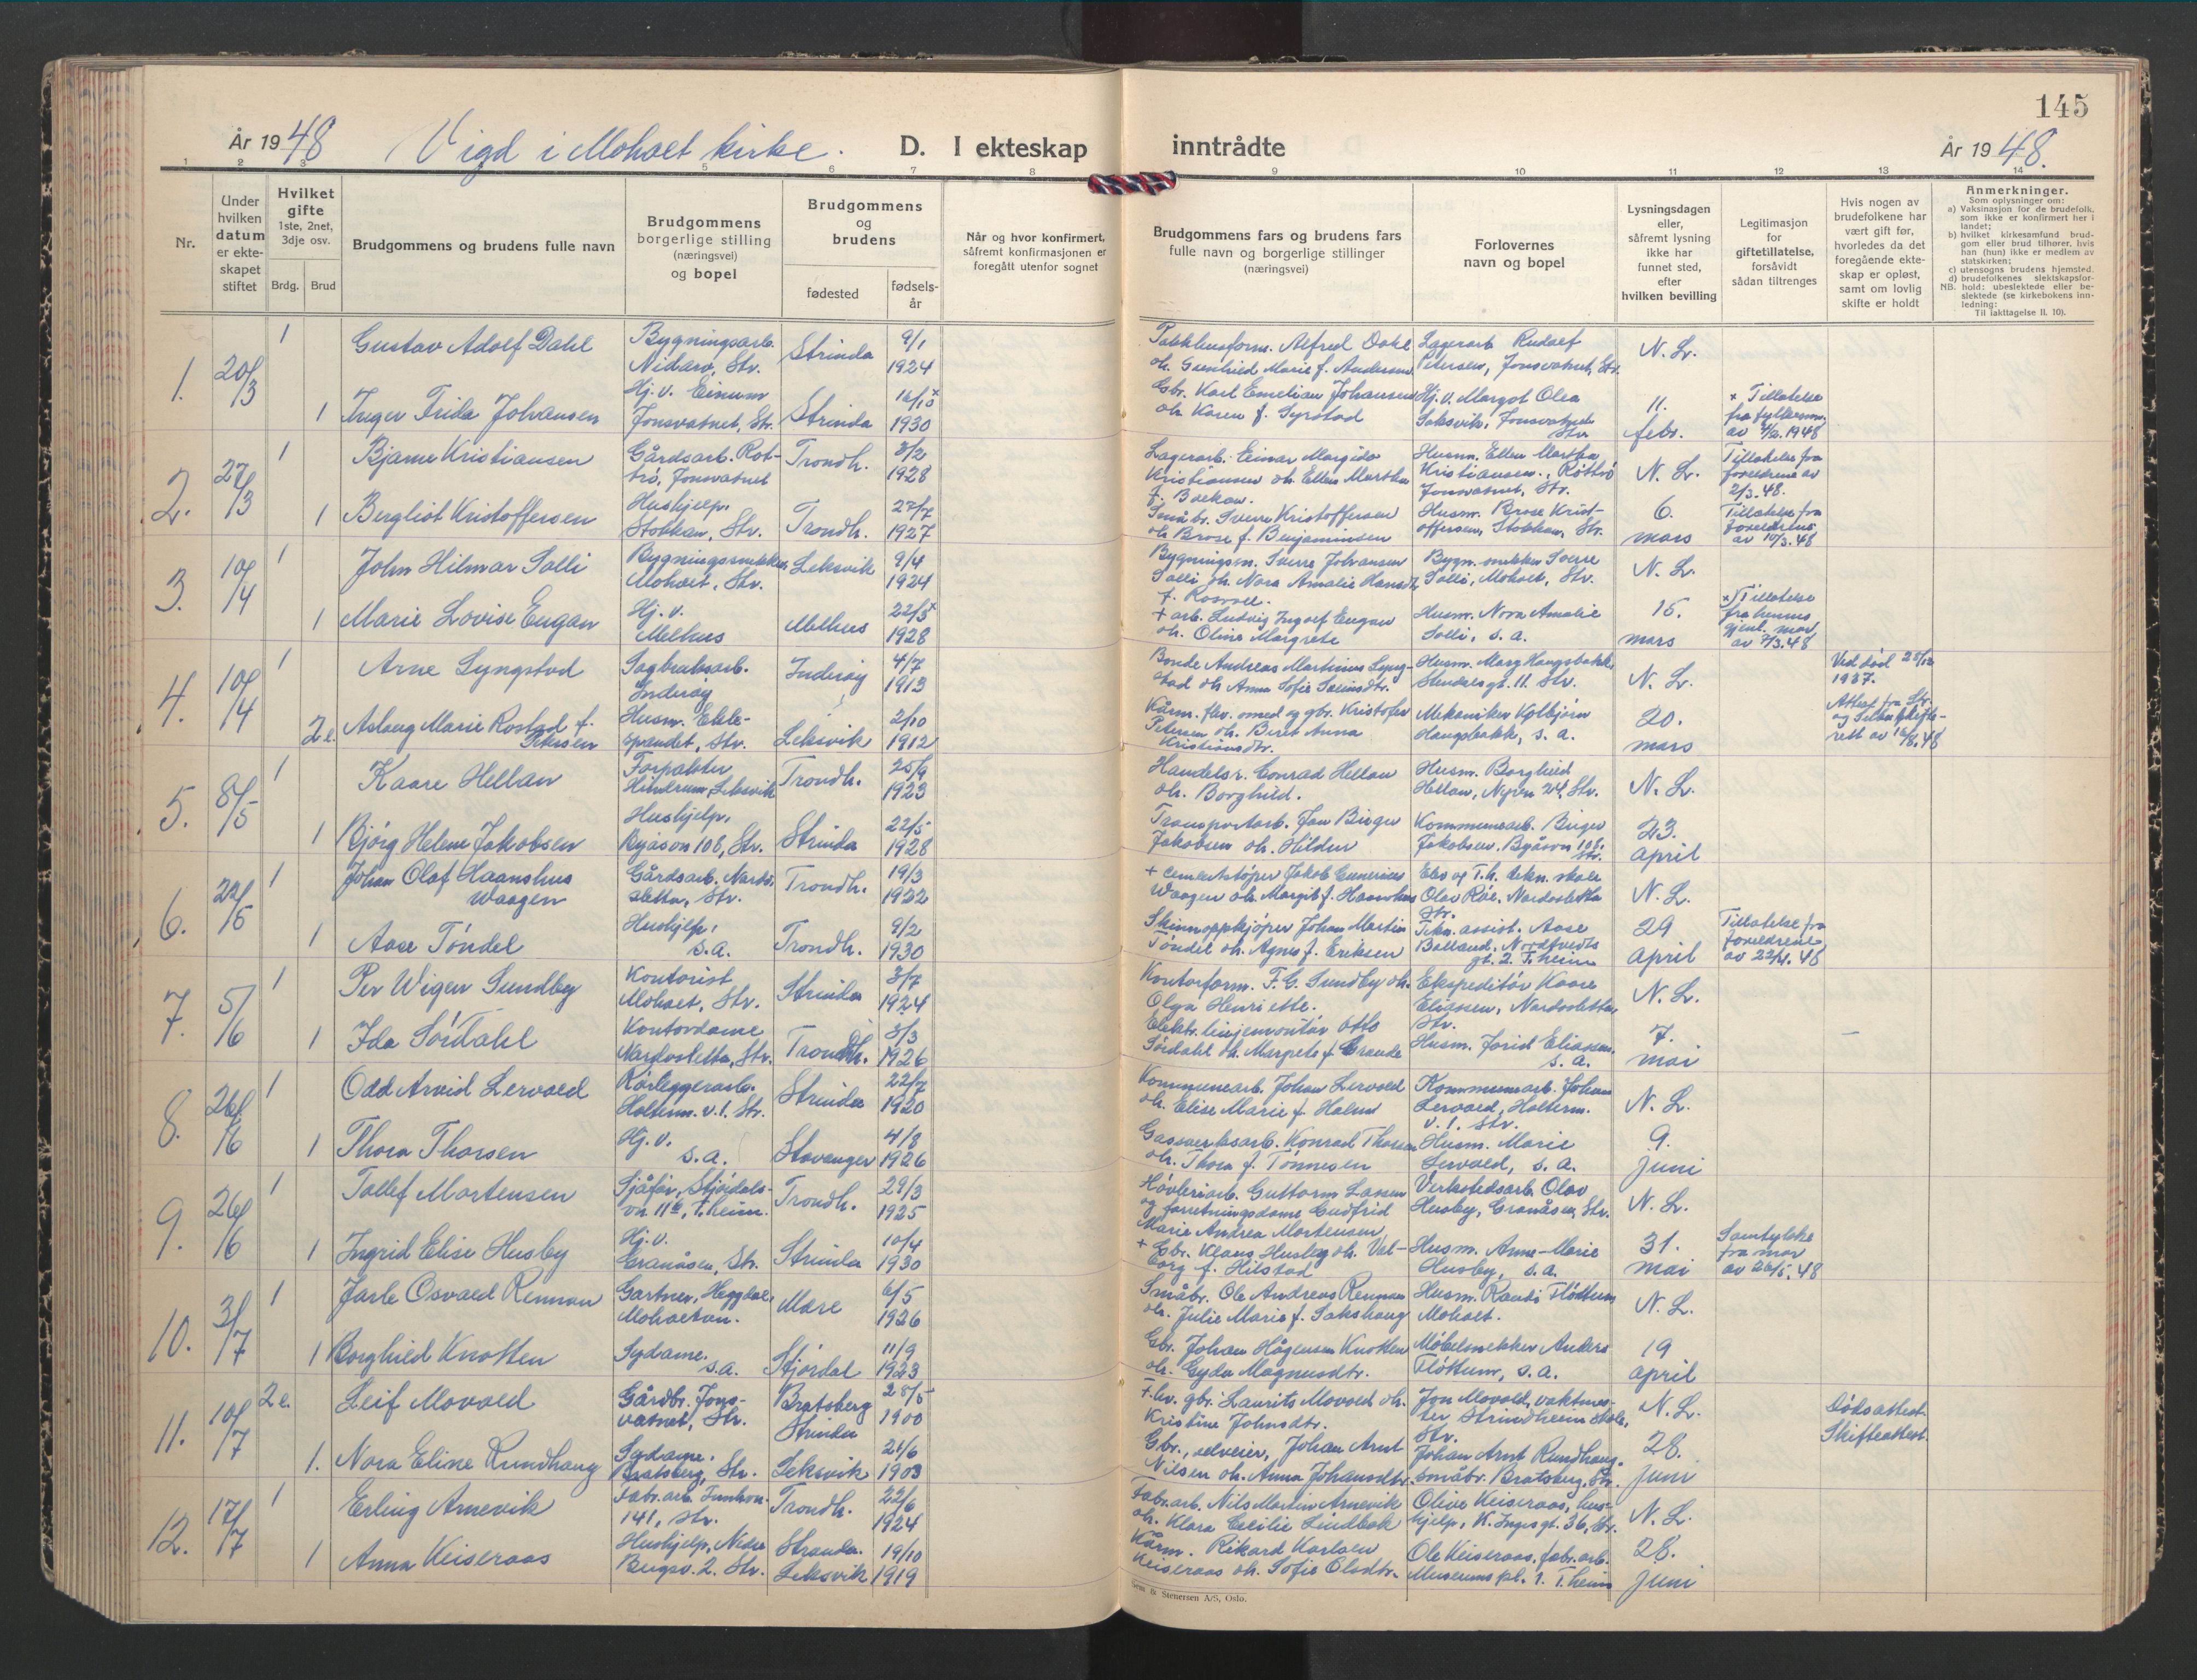 145
År 1948 Vigd i Moholt kirke. D. I ekteskap inntrådte År 1948.
1 2 3 5 6 7 8 9 10 11 12 13 14
Nr.
Under hvilken datum er ekteskapet stiftet
Hvilket gifte 1ste, 2net, 3dje osv.
Brdg. Brud
Brudgommens og brudens fulle navn
Brudgommens borgerlige stilling (næringsvei) og bopel
Brudgommens og brudens
fødested
fødselsår
Når og hvor konfirmert, såfremt konfirmasjonen er foregått utenfor sognet
Brudgommens fars og brudens fars fulle navn og borgerlige stillinger (næringsvei)
Forlovernes navn og bopel
Lysningsdagen eller, såfremt lysning ikke har funnet sted, efter hvilken bevilling
Legitimasjon for giftetillatelse, forsåvidt sådan tiltrenges
Hvis nogen av brudefolkene har vært gift før, hvorledes da det foregående ekteskap er opløst, samt om lovlig skifte er holdt
Anmerkninger.
Som oplysninger om:
a) Vaksinasjon for de brudefolk, som ikke er konfirmert her i landet;
b) hvilket kirkesamfund brudgom eller brud tilhører, hvis han (hun) ikke er medlem av statskirken;
c) utensogns brudens hjemsted.
d) brudefolkenes slektskapsforhold: ubeslektede eller beslektede (se kirkebokens innledning:
NB.
Til iakttagelse II. 10).
1. 20/3 1 Gustav Adolf Dahl Bygningsarb. Nidarv, Str. Strinda 9/1 1924 Pakkhusform. Alfred Dahl oh. Gunhild Marie f. Andersen Lagerarb. Rudolf Petersen, Jonsvatnet, Str. N. L.
1 Inger Frida Johansen Hj. v. Einum Jonsvatnet, Str. Strinda 16/10 x 1930 Gbr. Karl Emelian Johansen oh. Karen f. Syrstad Hj. v. Margot Olea Saksvik, Jonsvatnet Str. 11. febr. x Tillatelse fra fylkesm. av 1948
2. 27/3 1 Bjarne Kristiansen Gårdsarb. Rottrö, Jonsvatnet Trondh. 3/2 1928 Lagerarb. Einar Margido Kristiansen oh. Ellen Martha f. Husm. Ellen Martha Kristiansen, Röttrö Jonsvatnet, Str. N. L. Tillatelse fra foreldrene av 2/3. 48.
1 Bergliot Kristoffersen Hushjelp. Stokkan, Str. Trondh. 27/7 1927 Småbr. Sverre Kristoffersen oh Brose f. Benjaminsen Husm. Brose Kristoffersen, Stokkan, Str. 6. mars Tillatelse fra foreldrene av 10/3. 48
3. 10/4 1 John Hilmar Solli Bygningssnekker Moholt, Str. Leksvik 9/4 1924 Bygningsm. Sverre Johansen Solli oh. Nora Amalie Hansdtr. f. Rosvoll. Bygn. snekker Sverre Solli, Moholt, Str. N. L.
1 Marie Lovise Eugan Hj. v. Melhus Melhus 22/5 x 1928 + arb. Ludvig Ingolf Eugan oh. Oline Margrete Husm. Nora Amalie Solli, s. a. 15. mars x) Tillatelse fra hennes gjenl. mor av 7/3. 48
4. 10/4 1 Arne Lyngstad Sagbruksarb. Inderøy Inderøy 4/7 1913 Bonde Andreas Martinus Lyngstad oh Anna Sofie Sveinsdtr. Husm. Mary Haugsbakk, gt. 11. Str. N. L. Ved død 28/12 1937.
2e. Aslaug Marie Rostad f. Petersen Husm. Str. Leksvik 2/10 1912 Kårm. gbr. Kristofer Petersen oh. Beret Anna Kristiansdtr. Mekaniker Kolbjørn Haugsbakk, s. a. 20. mars Attest fra Str. og Selbu skifterett av 48
5. 8/5 1 Kaare Hellan Forpakter Hindrum, Leksvik Trondh. 25/9 1923 Handelsr. Conrad Hellan oh. Borghild. Husm. Borghild Hellan, Nyvn 24, Str. N. L.
1 Bjørg Helene Jakobsen Hushjelp. Byåsvn 108, Str. Strinda 22/5 1928 Transportarb. Jan Birger Jakobsen oh. Hildur Kommunearb. Birger Jakobsen, Byåsvn 108. Str. 23. april
6. 22/5 1 Johan Olaf Haanshus Waagen Gårdsarb. Nardosletta, Str. Trondh. 19/3 1922 + cementstøper Jakob Waagen oh. Margit f. Haanshus Elev og T.h. tekn. skole Olav Röe, Nardosletta Str. N. L.
1 Aase Töndel Hushjelp. s.a. Trondh. 9/2 1930 Skinnoppkjøper Johan Martin Töndel oh. Agnes f. Eriksen Tekn. assist. Aase Balland, Nordtvedts gt. 2. T.heim 29 april Tillatelse fra foreldrene av 22/4. 48
7. 5/6 1 Per Wigen Sundby Kontorist Moholt, Str. Strinda 3/7 1924 Kontorform. F. G. Sundby oh. Olga Henriette. Ekspeditör Kaare Eliassen, Nardosletta Str. N. L.
1 Ida Sördahl Kontordame Nardosletta, Str. Trondh. 8/3 1926 Elektr. linjemontör Otto Sördahl oh. Margrete f. Grande Husm. Jorid Eliassen, s. a. 7. mai –
8. 26/6 1 Odd Arvid Lervold Rörleggerarb. Holterm. v. 1. Str. Strinda 22/7 1920 Kommunearb. Johan Lervold oh. Elise Marie f. Holm Kommunearb. Johan Lervold, Holterm. v. 1. Str. N. L.
1 Thora Thorsen Hj. v. s. a. Stavanger 4/8 1926 Gassverksarb. Konrad Thorsen oh. Thora f. Tönnesen Husm. Marie Lervold, s. a. 9. juni
9. 26/6 1 Tollef Mortensen Sjåfør, Stjördalsvn. 11b, T.heim. Trondh. 29/3 1925 Hövleriarb. Guttorm Lassen og forretningsdame Gudfrid Marie Andrea Mortensen Verkstedsarb. Olav Husby, Granåsen, Str. N. L.
1 Ingrid Elise Husby Hj. v. Granåsen, Str. Strinda 10/4 1930 + Gbr. Klaus Husby oh. Valborg f. Hilstad Husm. Anne-Marie Husby, s. a. 31. mai Samtykke fra mor av 26/5. 48
10. 3/7 1 Jarle Osvald Rennan Gartner, Heggdal, Moholtan. Mære 6/5 1926 Småbr. Ole Andreas Rennan oh. Julie Marie f. Sakshaug Husm. Randi Flöttum Moholt. N. L.
1 Borghild Knotten Sydame. s.a. Stjördal 11/9 1923 Gbr. Johan Hågensen Knotten oh. Gyda Magnusdtr. Möbelsnekker Anders Flöttum, s. a. 19 april
11. 10/7 2e. Leif Movold Gårdbr. Jonsvatnet, Str. Bratsberg Strinda 28/5 1900 gbr. Laurits Movold oh. Kristine Johnsdtr. Jon Movold, vaktmester Strindheim skole, Str. N. L. Dödsattest. Skifteattest
1. Nora Eline Rundhaug Sydame. Bratsberg, Str. Leksvik 21/6 1903 Gbr., selveier, Johan Arnt Nilsen oh. Anna Johansdtr. Johan Arnt Rundhaug. småbr. Bratsberg, Str. 28. juni
12. 17/7 1 Erling Arnevik Fabr. arb. 141, Str. Trondh. 22/6 1924 Fabr. arb. Nils Martin Arnevik oh. Klara Cecilie Lindbak Olive Keiseraas, hushjelp, K. Inges gt. 36, Str. N. L.
1 Anna Keiseraas Hushjelp, Nedre Bergsv. 2. Str. Stranda. Leksvik 19/10 1919 Kårm. Rikard Karlsen Keiseraas oh. Sofie Olsdtr. Ole Keiseraas, fabr. arb. Museums pl. 1. T.heim 28. juni
Sem & Stenersen A/S, Oslo.